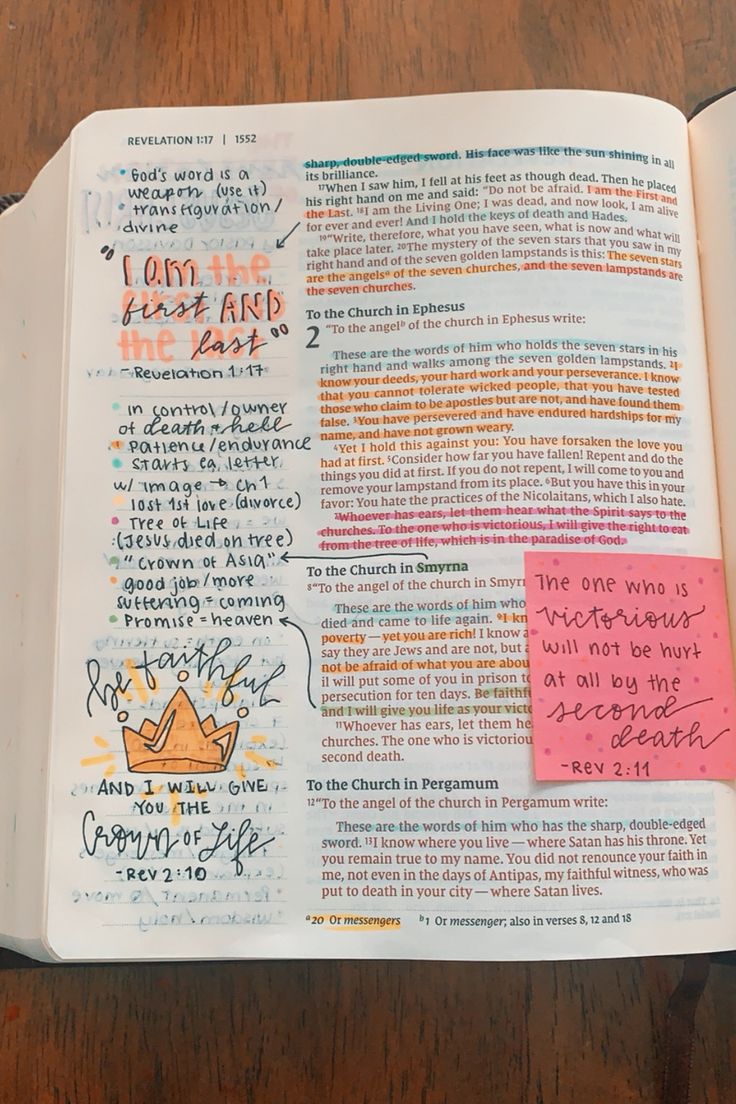 REVELATION 1:17 | 1552
• God's word is a
weapon (use it)
• transfiguration/
divine
"I am
first AND
last"
-Revelation 1:17
• in control/owner
of death + hell
• Patience/endurance
• Starts ea. letter
w/ image → ch1
• lost 1st love (divorce)
• Tree of Life
:(Jesus died on tree)
• "Crown of Asia"
• good job/more
suffering = coming
• Promise = heaven
be faithful
AND I WILL GIVE
YOU THE
Crown OF Life
-Rev 2:10
sharp, double-edged sword. His face was like the sun shining in all
its brilliance.
17When I saw him, I fell at his feet as though dead. Then he placed
his right hand on me and said: "Do not be afraid. I am the First and
the Last. 18I am the Living One; I was dead, and now look, I am alive
for ever and ever! And I hold the keys of death and Hades.
19"Write, therefore, what you have seen, what is now and what will
take place later. 20The mystery of the seven stars that you saw in my
right hand and of the seven golden lampstands is this: The seven stars
are the angelsa of the seven churches, and the seven lampstands are
the seven churches.
To the Church in Ephesus
2 "To the angelb of the church in Ephesus write:
These are the words of him who holds the seven stars in his
right hand and walks among the seven golden lampstands. 2I
know your deeds, your hard work and your perseverance. I know
that you cannot tolerate wicked people, that you have tested
those who claim to be apostles but are not, and have found them
false. 3You have persevered and have endured hardships for my
name, and have not grown weary.
4Yet I hold this against you: You have forsaken the love you
had at first. 5Consider how far you have fallen! Repent and do the
things you did at first. If you do not repent, I will come to you and
remove your lampstand from its place. 6But you have this in your
favor: You hate the practices of the Nicolaitans, which I also hate.
7Whoever has ears, let them hear what the Spirit says to the
churches. To the one who is victorious, I will give the right to eat
from the tree of life, which is in the paradise of God.
To the Church in Smyrna
8"To the angel of the church in Smyr
These are the words of him who
died and came to life again. 9I kn
poverty — yet you are rich! I know a
say they are Jews and are not, but
not be afraid of what you are abou
il will put some of you in prison t
persecution for ten days. Be faithf
and I will give you life as your victo
11Whoever has ears, let them he
churches. The one who is victoriou
second death.
The one who is
victorious
will not be hurt
at all by the
second
death
-Rev 2:11
To the Church in Pergamum
12"To the angel of the church in Pergamum write:
These are the words of him who has the sharp, double-edged
sword. 13I know where you live — where Satan has his throne. Yet
you remain true to my name. You did not renounce your faith in
me, not even in the days of Antipas, my faithful witness, who was
put to death in your city — where Satan lives.
a20 Or messengers b1 Or messenger; also in verses 8, 12 and 18